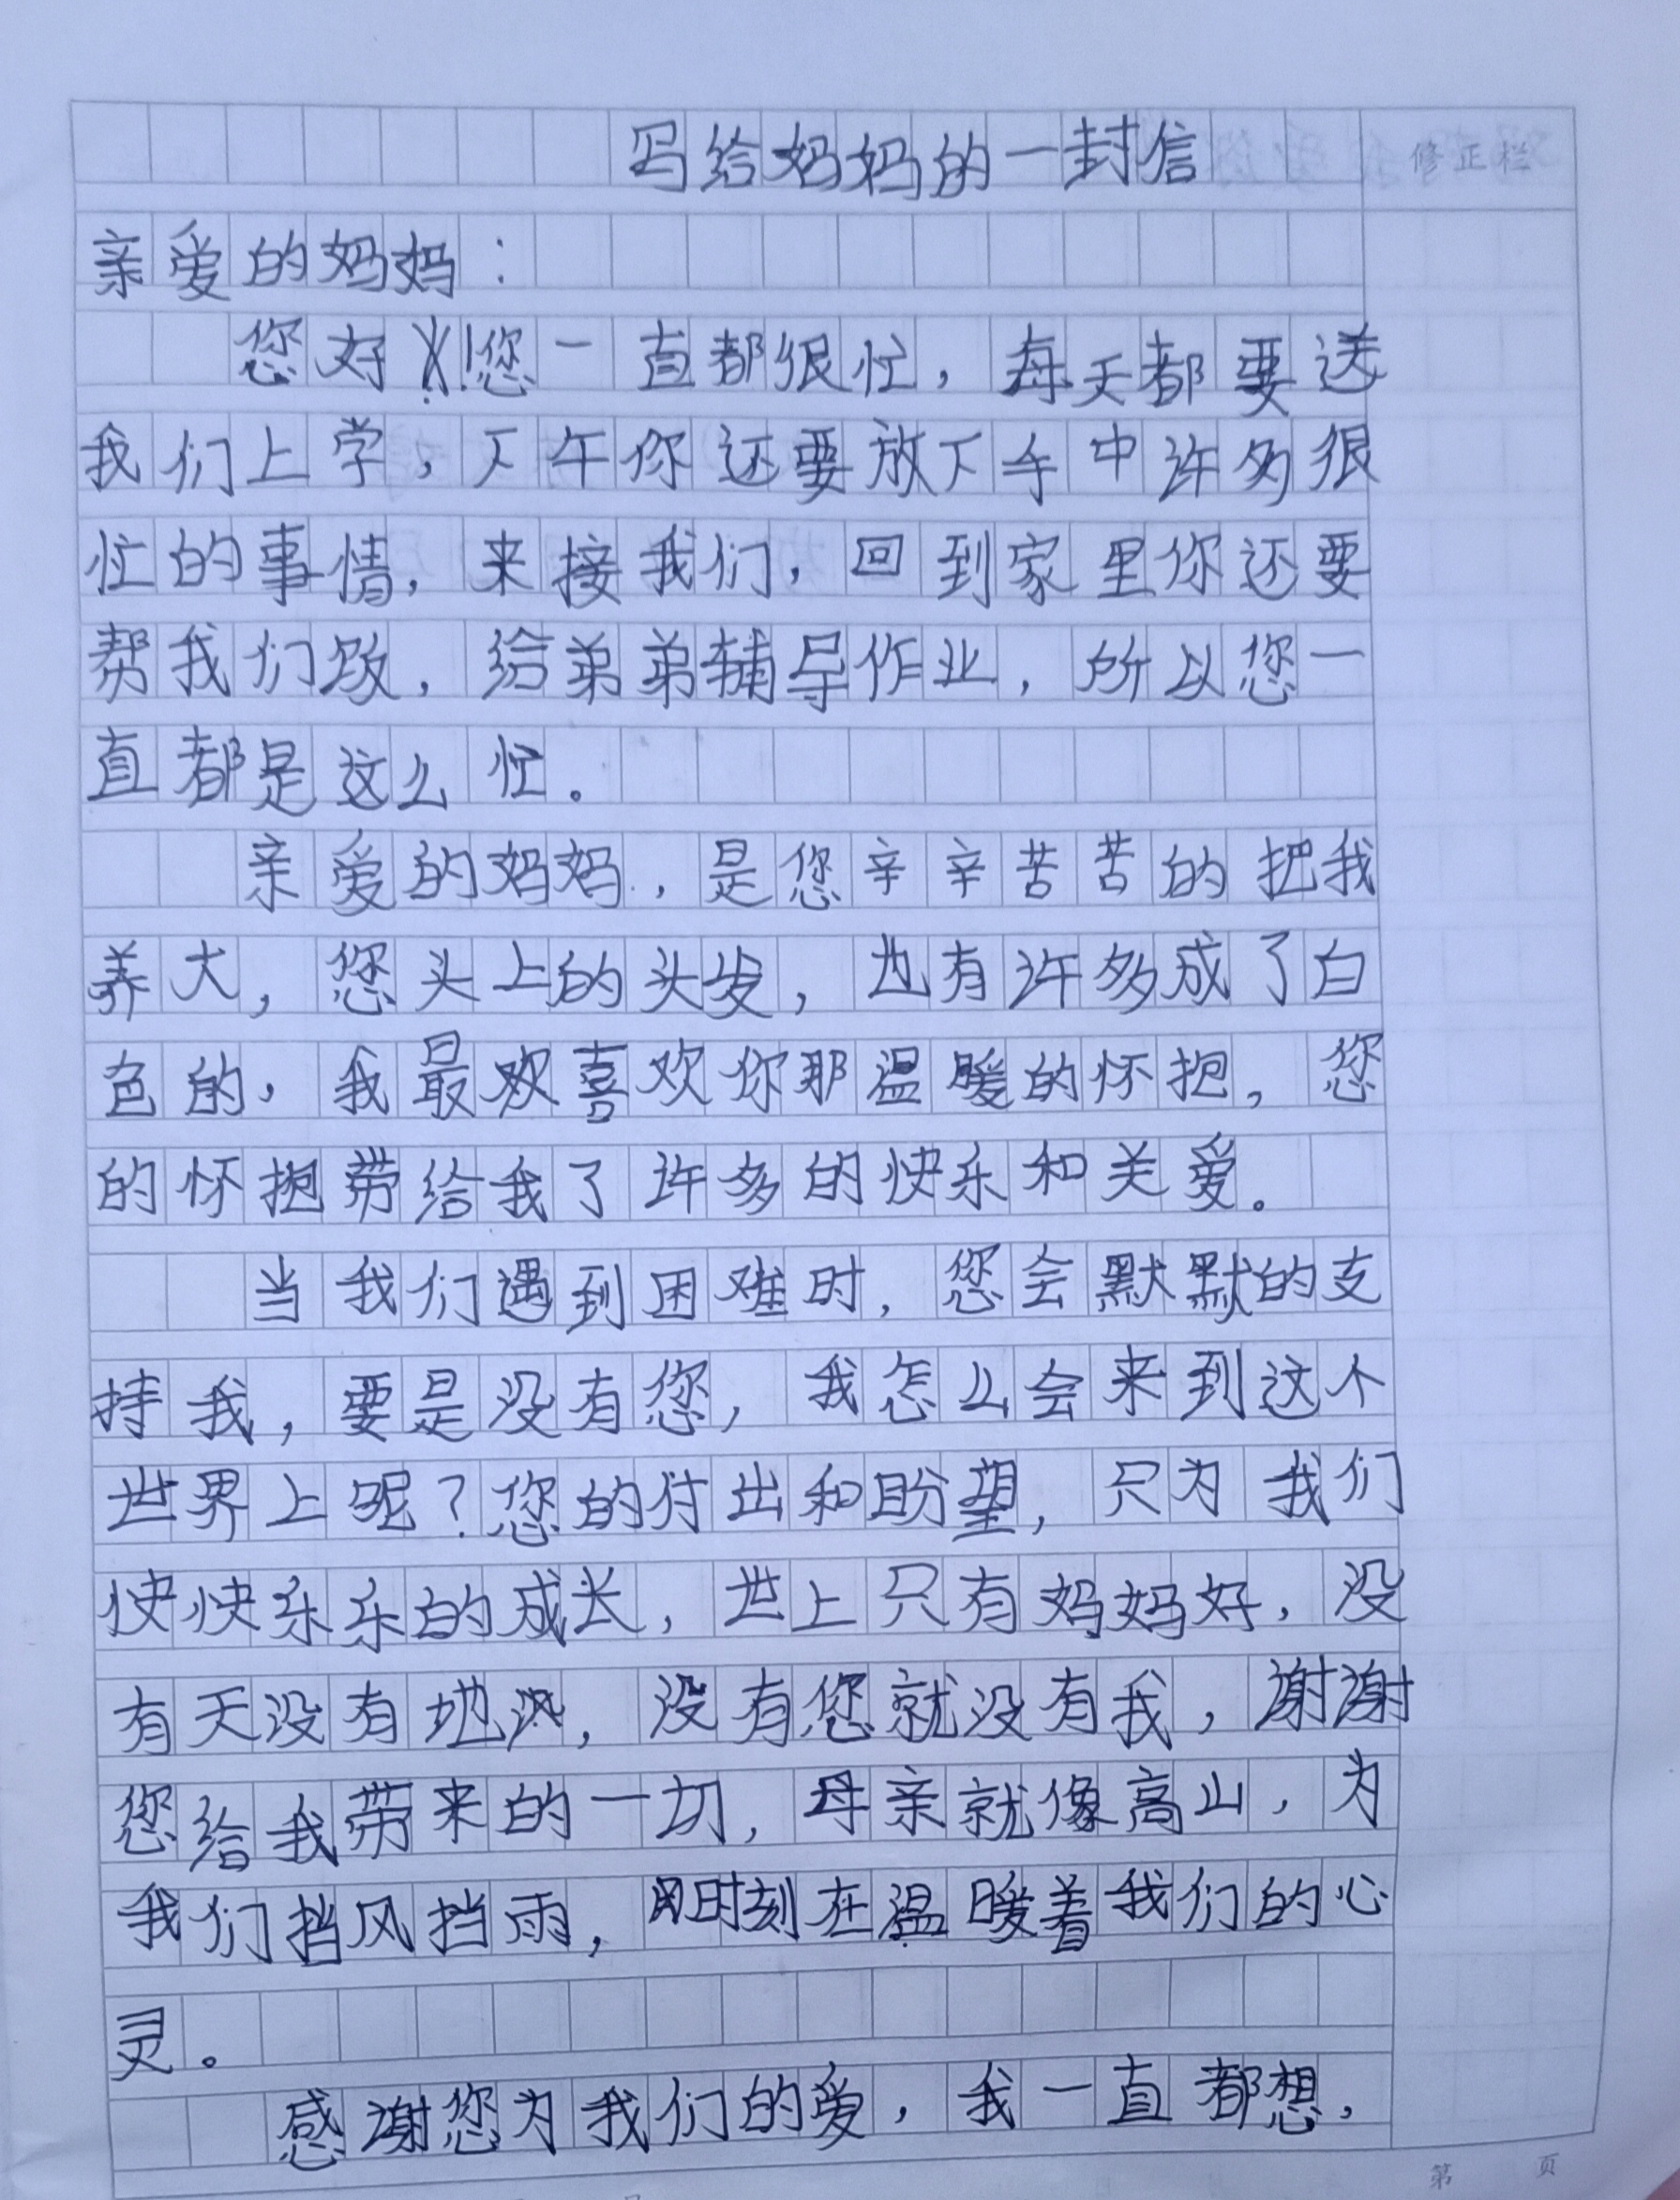 写给妈妈的一封信
修正栏
亲爱的妈妈：
您好！您一直都很忙，每天都要送
我们上学，下午你还要放下手中许多很
忙的事情，来接我们，回到家里你还要
帮我们，给弟弟辅导作业，所以您一
直都是这么忙。
亲爱的妈妈，是您辛辛苦苦的把我
养大，您头上的头发，也有许多成了白
色的，我最欢喜欢你那温暖的怀抱，您
的怀抱带给我了许多的快乐和关爱。
当我们遇到困难时，您会默默的支
持我，要是没有您，我怎么会来到这个
世界上呢？您的付出和盼望，只为我们
快快乐乐的成长，世上只有妈妈好，没
有天没有地，没有您就没有我，谢谢
您给我带来的一切，母亲就像高山，为
我们挡风挡雨，时刻在温暖着我们的心
灵。
感谢您为我们的爱，我一直都想，
第 页